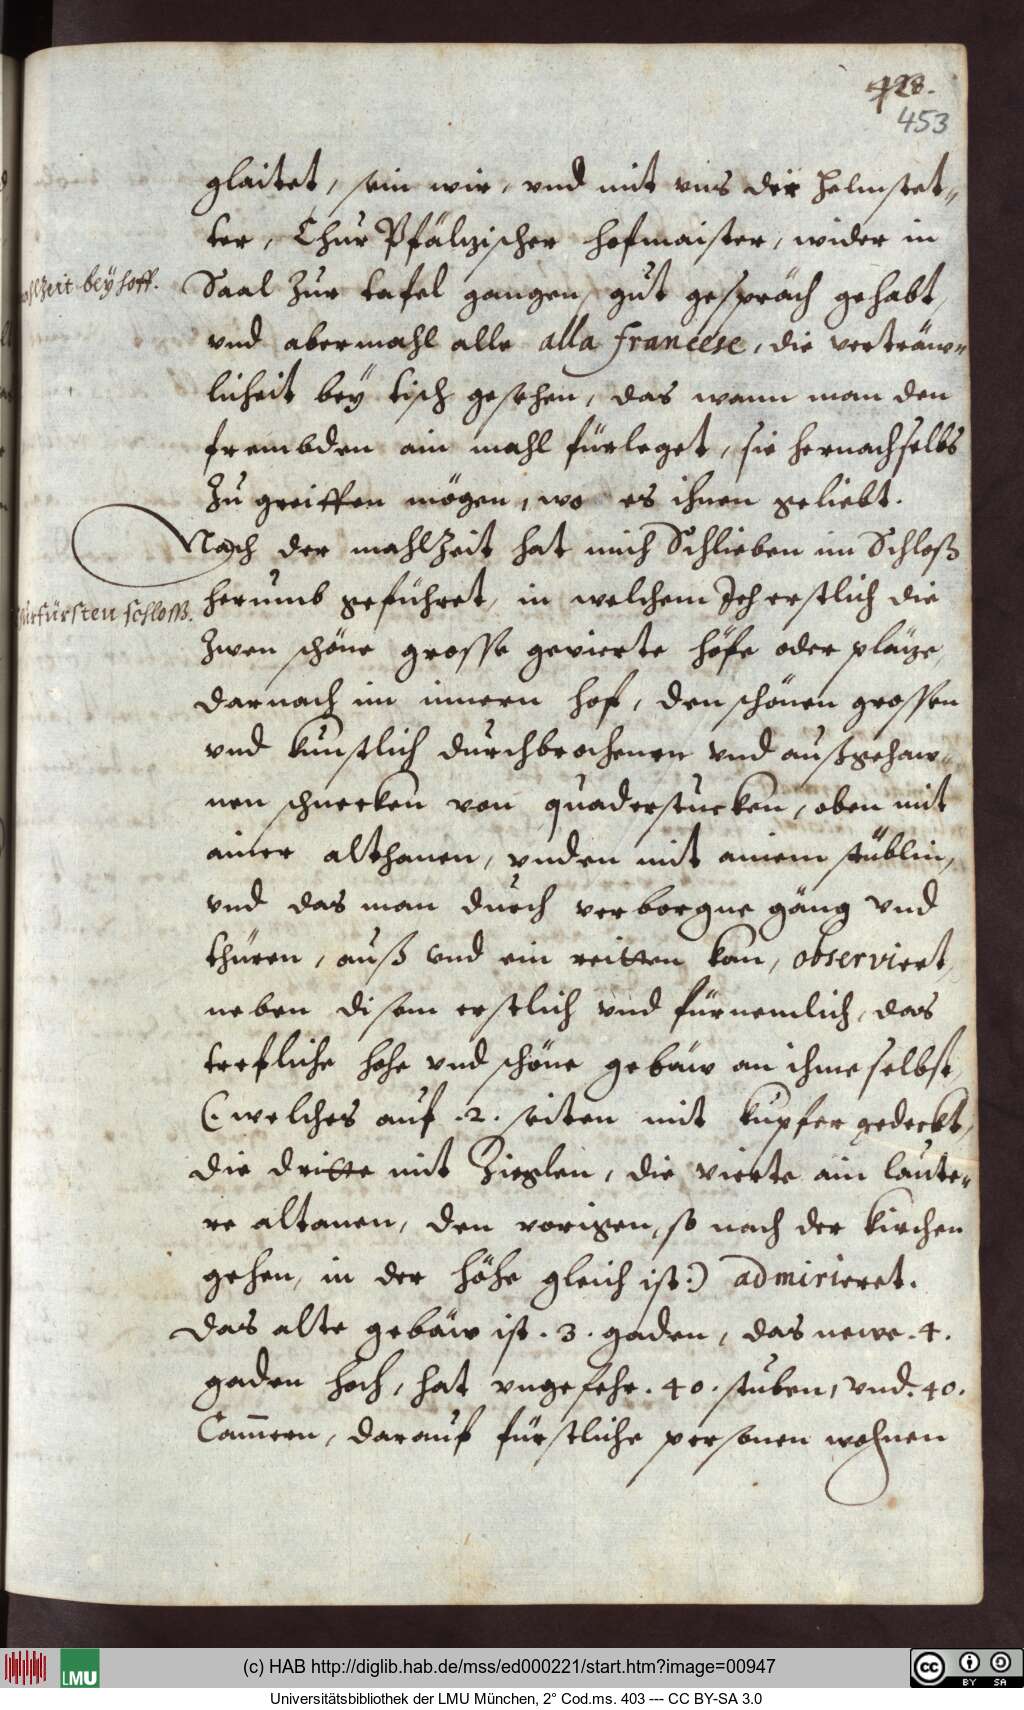 428.
453
glaitet, sein wir, vnd mit vns der Helmstet„
ter, Chur Pfältzischer hofmaister, wider in
Saal Zur tafel gangen, gůt gespräch gehabt,
vnd abermahl alle alla francese, die verträw„
licheit beÿ tisch gesehen, das wann man den
frembden ain mahl fürleget, sie hernach selbs
Zů greiffen mögen, wo es ihnen geliebt.
Nach der mahlZeit hat mich Schlieben im Schloß
herumb geführet, in welchem Ich erstlich die
Zwen schöne grosse gevierte höfe oder plätze,
darnach im innern hof, den schönen grossen
vnd kunstlich durchbrochenen vnd außgehaw„
nen schnecken von quaderstucken, oben mit
ainer althanen, vnden mit ainem stüblin,
vnd das man durch verborgne gäng vnd
thüren, auß vnd ein reitten kan, observiert,
neben disem erstlich vnd fürnemlich, das
trefliche hohe vnd schöne gebäw an ihme selbst,
(: welches auf .2. seiten mit kupfer gedeckt,
die dritte mit Zieglen, die vierte ain laute„
re altanen, den vorigen, so nach der kirchen
gehen, in der höhe gleich ist:) admirieret.
Das alte gebäw ist .3. gaden, das newe .4.
gaden hoch, hat vngefehr .40. stuben, vnd .40.
Cam̅ern, darauf fürstliche personen wohnen
beÿ hoff.
fürsten schloss.
(c) HAB http://diglib.hab.de/mss/ed000221/start.htm?image=00947
LMU
Universitätsbibliothek der LMU München, 2° Cod.ms. 403 --- CC BY-SA 3.0
cc BY SA